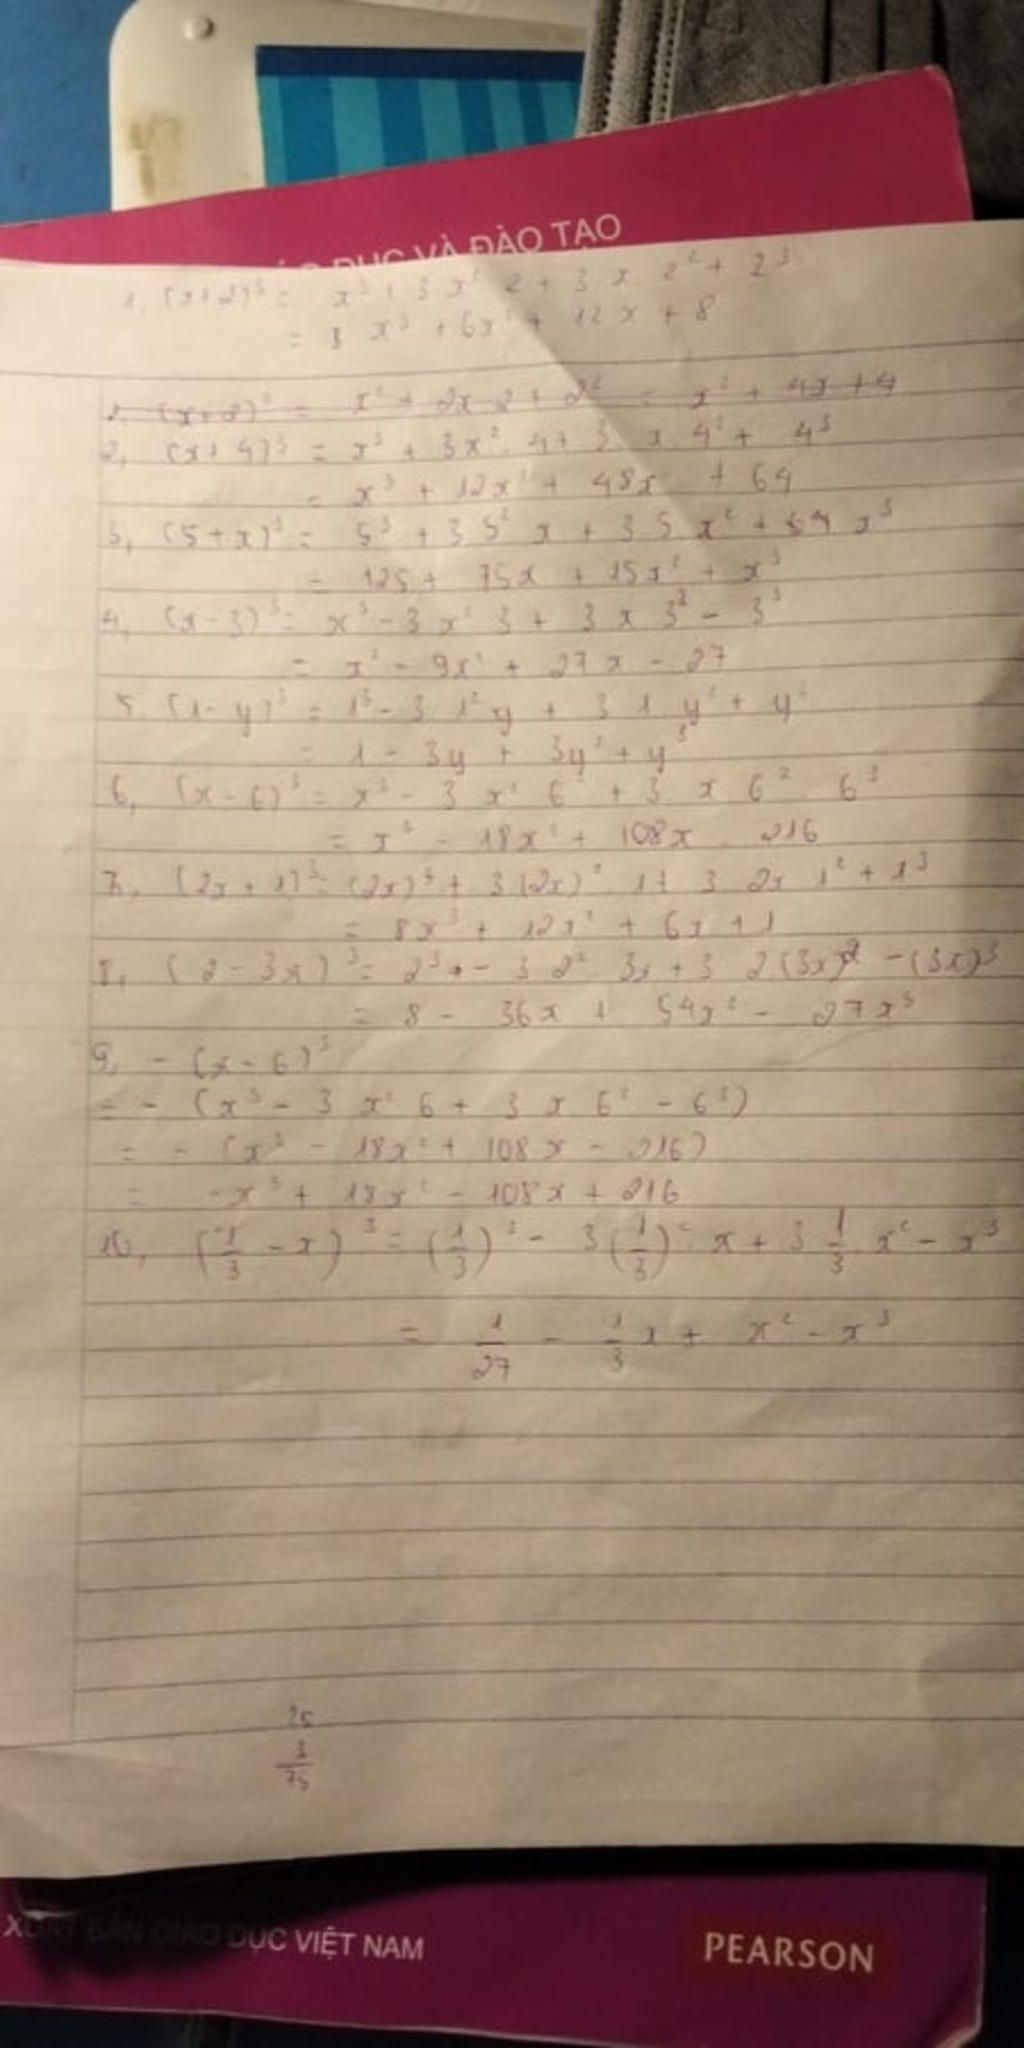 ỤC VÀ ĐÀO TẠO
1, (x+2)³ = x³ + 3 x² 2 + 3 x 2² + 2³
= x³ + 6x² + 12 x + 8
2. (x+2)² = x² + 2x 2 + 2² = x² + 4x + 4
2, (x+4)³ = x³ + 3x² . 4 + 3 x 4² + 4³
= x³ + 12x² + 48x + 64
3, (5+x)³ = 5³ + 3 5² x + 3 5 x² + x³
= 125 + 75x + 15x² + x³
4, (x-3)³ = x³ - 3 x² 3 + 3 x 3² - 3³
= x³ - 9x² + 27x - 27
5. (1-y)³ = 1³ - 3 1² y + 3 1 y² + y³
= 1 - 3y + 3y² + y³
6, (x-6)³ = x³ - 3 x² 6 + 3 x 6² 6³
= x³ - 18x² + 108x 216
7, (2x+1)³ = (2x)³ + 3 (2x)² 1 + 3 2x 1² + 1³
= 8x³ + 12x² + 6x + 1
8, (2-3x)³ = 2³ - 3 2² 3x + 3 2 (3x)² - (3x)³
= 8 - 36x + 54x² - 27x³
9, - (x-6)³
= - (x³ - 3 x² 6 + 3 x 6² - 6³)
= - (x³ - 18x² + 108x - 216)
= -x³ + 18x² - 108x + 216
10, (1/3 - x)³ = (1/3)³ - 3 (1/3)² . x + 3 1/3 x² - x³
= 1/27 - 1/3 x + x² - x³
25
3
75
XUẤT BẢN GIÁO DỤC VIỆT NAM
PEARSON